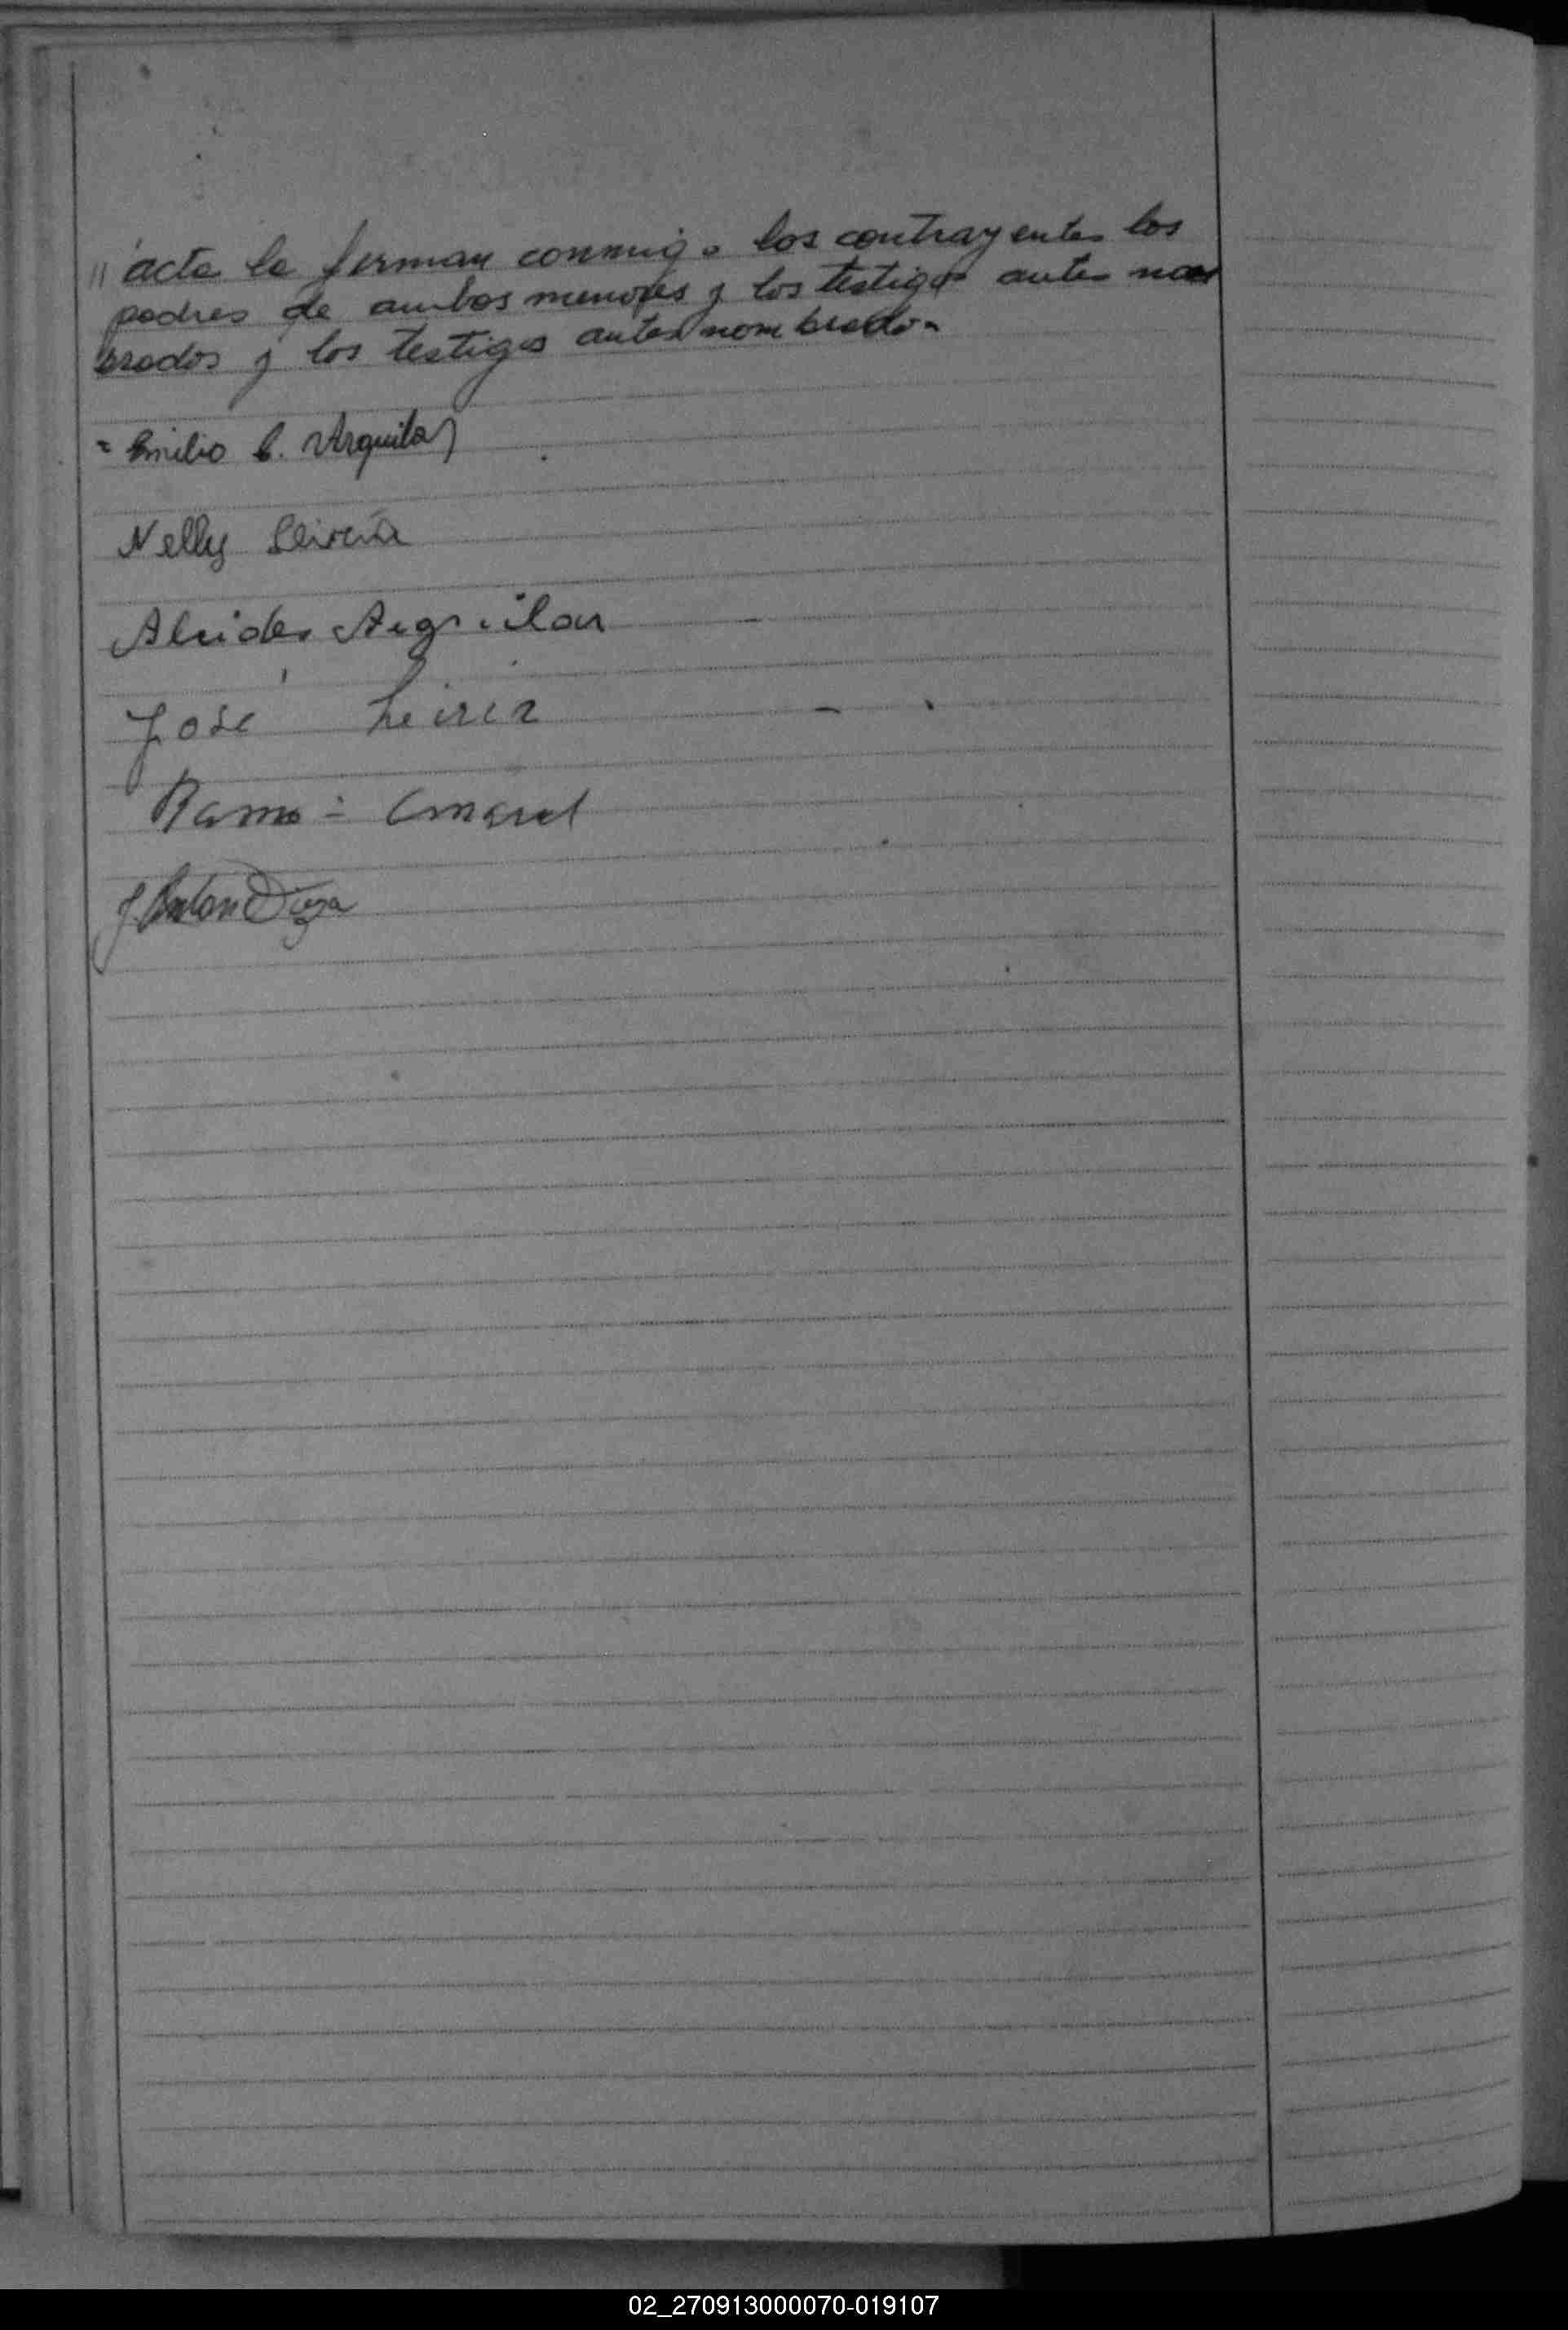 " acta la firman conmigo los contrayentes los
padres de ambos menores y los testigos antes nom
brados y los testigos antes nombrados-
= Emilio C. Arguilar
Nelly Leiria
Alcides Arguilar
José Leiria
Ramo= Amaral
J. Anton
02_270913000070-019107